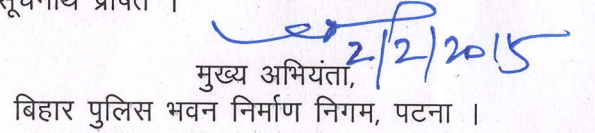 सूचनार्थ प्रेषित ।
2/2/2015
मुख्य अभियंता,
बिहार पुलिस भवन निर्माण निगम, पटना ।